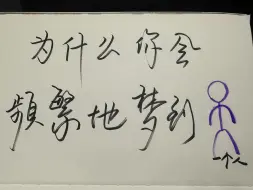 为什么你会
频繁地梦到
一个人